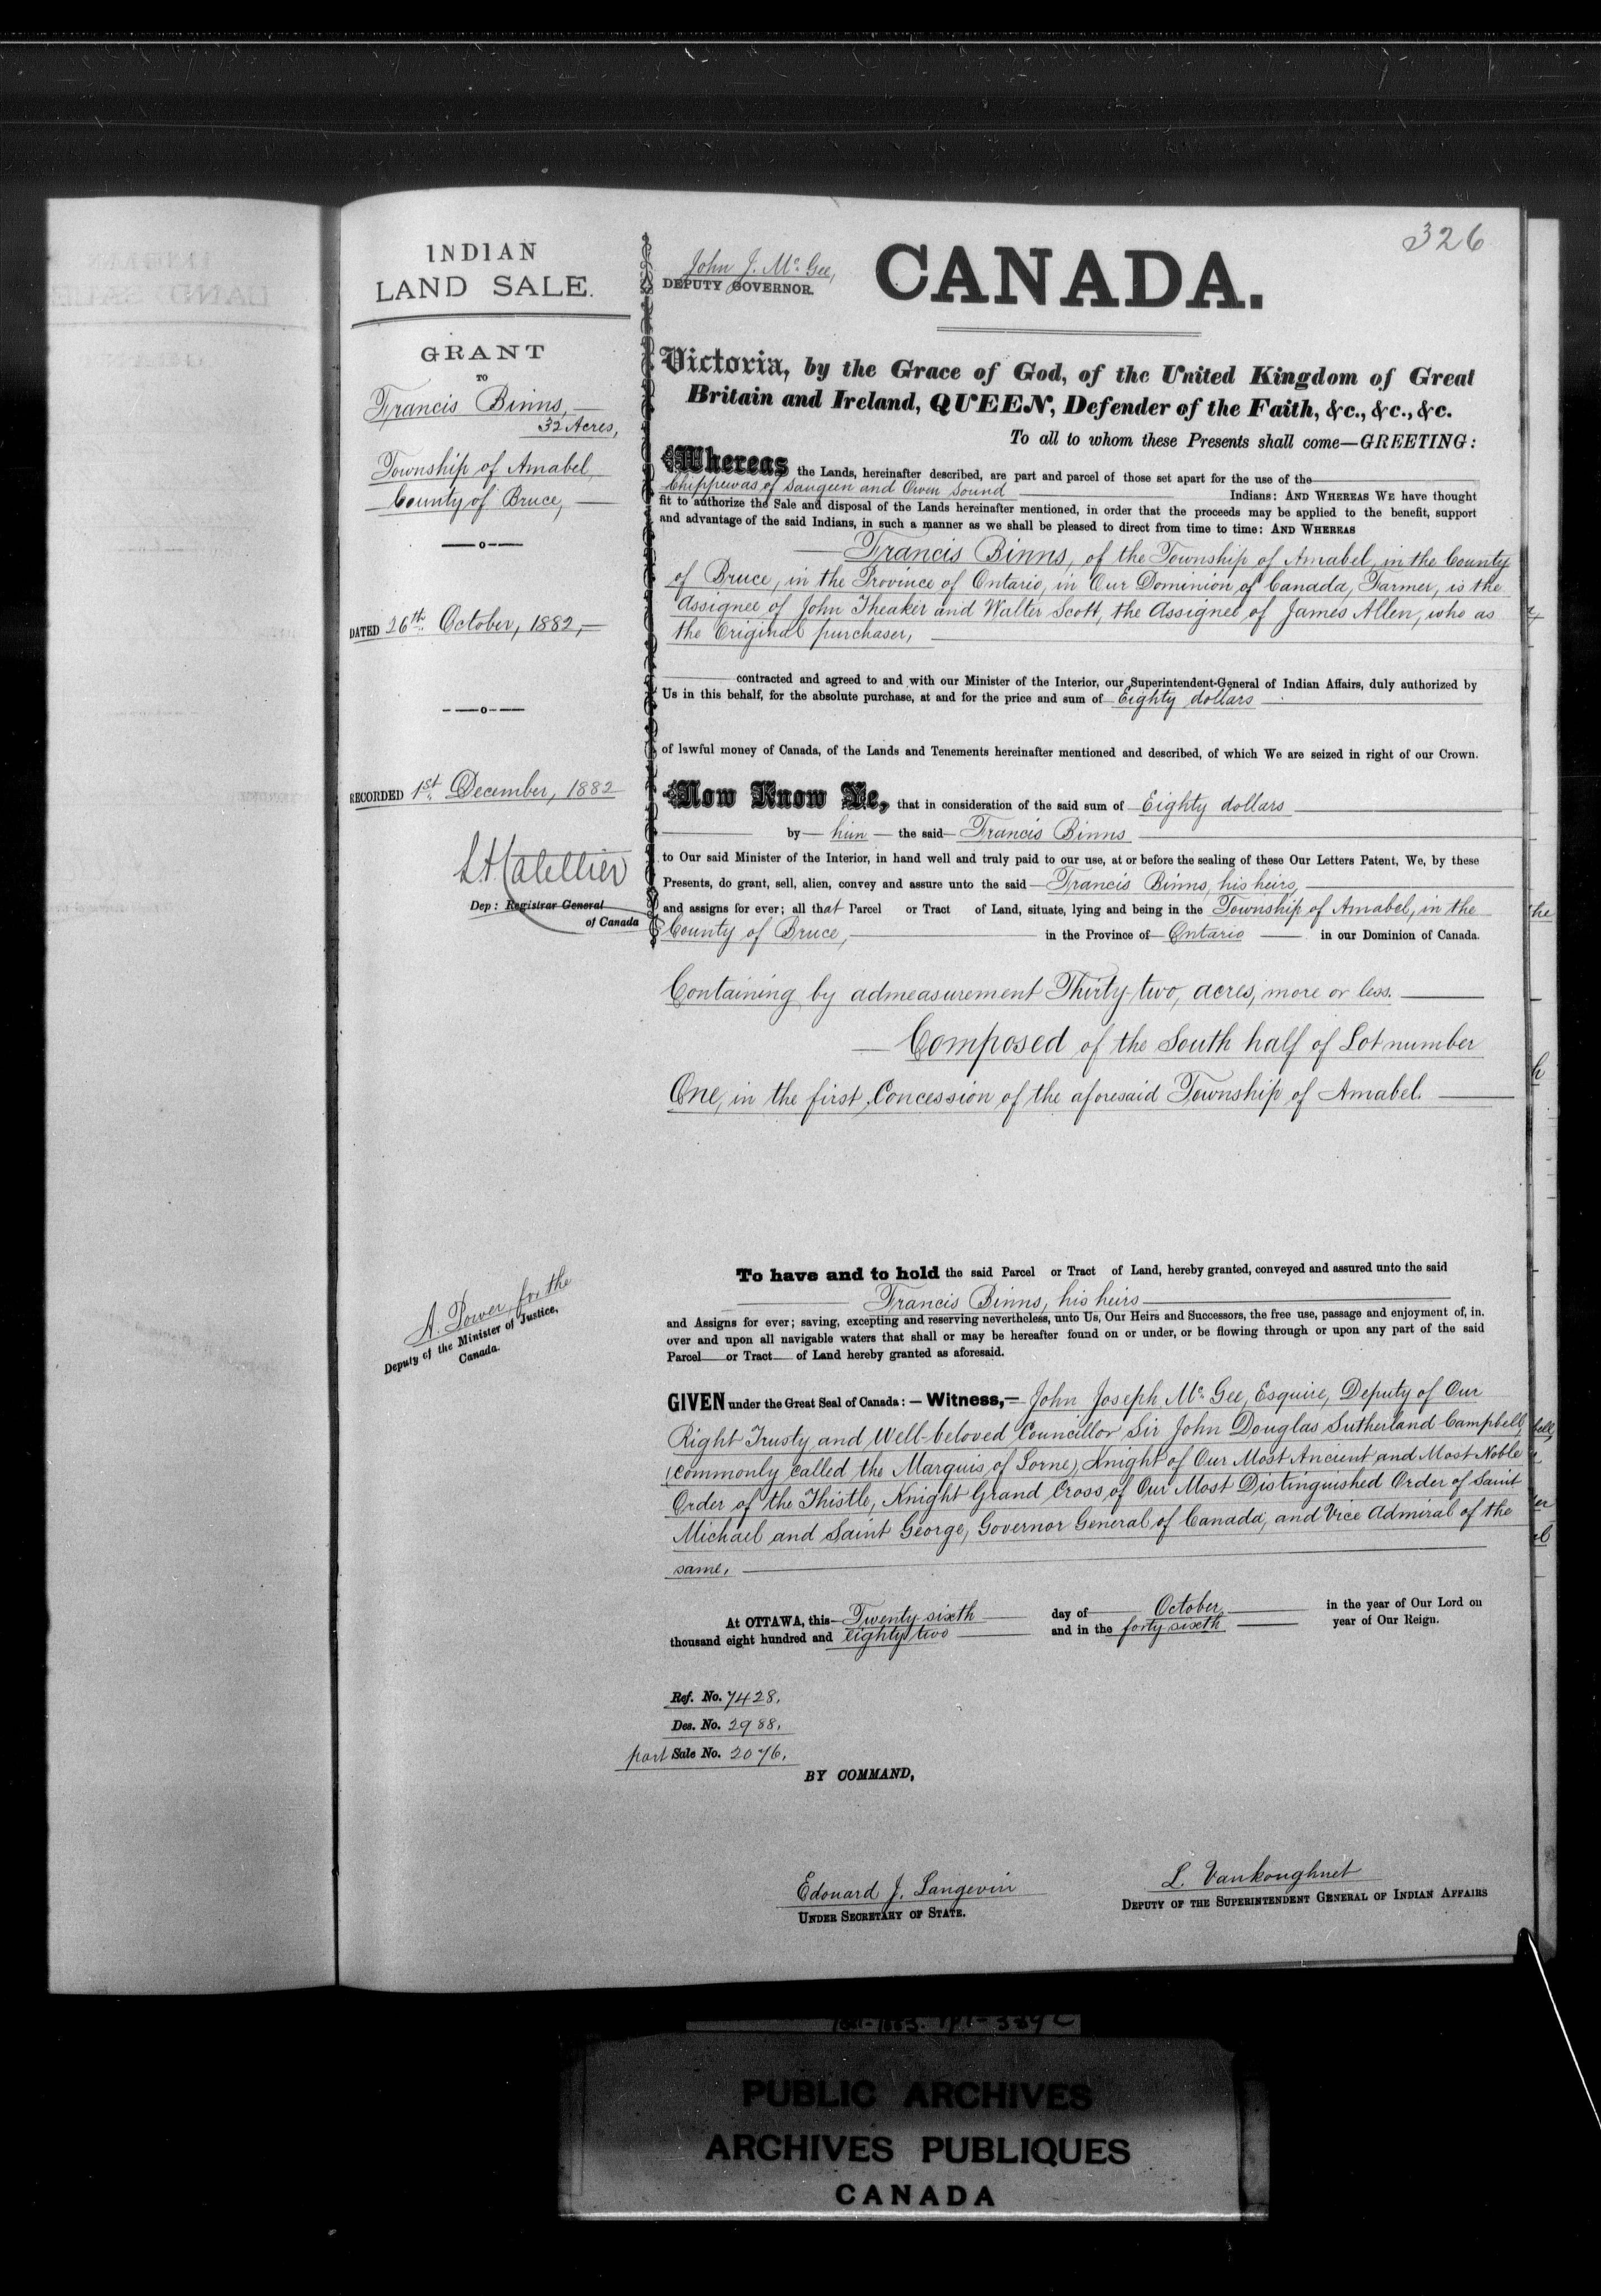 326
INDIAN
LAND SALE.
GRANT
TO
Francis Binns,
32 Acres,
Township of Amabel,
County of Bruce,
DATED 26th October, 1882,
RECORDED 1st December, 1882
Dep: Registrar General
of Canada
A. Power for the
Deputy of the Minister of Justice,
Canada.
John J. McGee,
DEPUTY GOVERNOR.
CANADA.
Victoria, by the Grace of God, of the United Kingdom of Great
Britain and Ireland, QUEEN, Defender of the Faith, &c., &c., &c.
To all to whom these Presents shall come—GREETING:
Whereas the Lands, hereinafter described, are part and parcel of those set apart for the use of the
Chippewas of Saugeen and Owen Sound Indians: AND WHEREAS WE have thought
fit to authorize the Sale and disposal of the Lands hereinafter mentioned, in order that the proceeds may be applied to the benefit, support
and advantage of the said Indians, in such a manner as we shall be pleased to direct from time to time: AND WHEREAS
Francis Binns, of the Township of Amabel, in the County
of Bruce, in the Province of Ontario, in Our Dominion of Canada, Farmer, is the
Assignee of John Theaker and Walter Scott, the Assignee of James Allen, who as
the Original purchaser,
contracted and agreed to and with our Minister of the Interior, our Superintendent-General of Indian Affairs, duly authorized by
Us in this behalf, for the absolute purchase, at and for the price and sum of Eighty dollars
of lawful money of Canada, of the Lands and Tenements hereinafter mentioned and described, of which We are seized in right of our Crown.
Now Know Ye, that in consideration of the said sum of Eighty dollars
by him the said Francis Binns
to Our said Minister of the Interior, in hand well and truly paid to our use, at or before the sealing of these Our Letters Patent, We, by these
Presents, do grant, sell, alien, convey and assure unto the said Francis Binns, his heirs,
and assigns for ever; all that Parcel or Tract of Land, situate, lying and being in the Township of Amabel, in the
County of Bruce, in the Province of Ontario in our Dominion of Canada.
Containing by admeasurement Thirty-two, acres, more or less.
Composed of the South half of Lot number
One, in the first Concession of the aforesaid Township of Amabel.
To have and to hold the said Parcel or Tract of Land, hereby granted, conveyed and assured unto the said
Francis Binns, his heirs
and Assigns for ever; saving, excepting and reserving nevertheless, unto Us, Our Heirs and Successors, the free use, passage and enjoyment of, in,
over and upon all navigable waters that shall or may be hereafter found on or under, or be flowing through or upon any part of the said
Parcel or Tract of Land hereby granted as aforesaid.
GIVEN under the Great Seal of Canada:—Witness,—John Joseph McGee, Esquire, Deputy of Our
Right Trusty and Well-beloved Councillor Sir John Douglas Sutherland Campbell,
(commonly called the Marquis of Lorne), Knight of Our Most Ancient and Most Noble
Order of the Thistle, Knight Grand Cross of Our Most Distinguished Order of Saint
Michael and Saint George, Governor General of Canada, and Vice Admiral of the
same,
At OTTAWA, this Twenty sixth day of October, in the year of Our Lord on
thousand eight hundred and eighty two and in the forty sixth year of Our Reign.
Ref. No. 7428.
Des. No. 2988.
part Sale No. 2076.
BY COMMAND,
Edouard J. Langevin
UNDER SECRETARY OF STATE.
L. Vankoughnet
DEPUTY OF THE SUPERINTENDENT GENERAL OF INDIAN AFFAIRS
PUBLIC ARCHIVES
ARCHIVES PUBLIQUES
CANADA